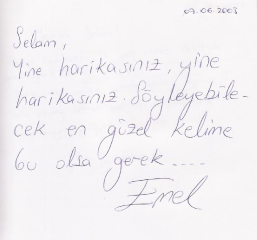 07.06.2003
Selam,
Yine harikasınız, yine
harikasınız. Söyleyebile-
cek en güzel kelime
bu olsa gerek....
Emel